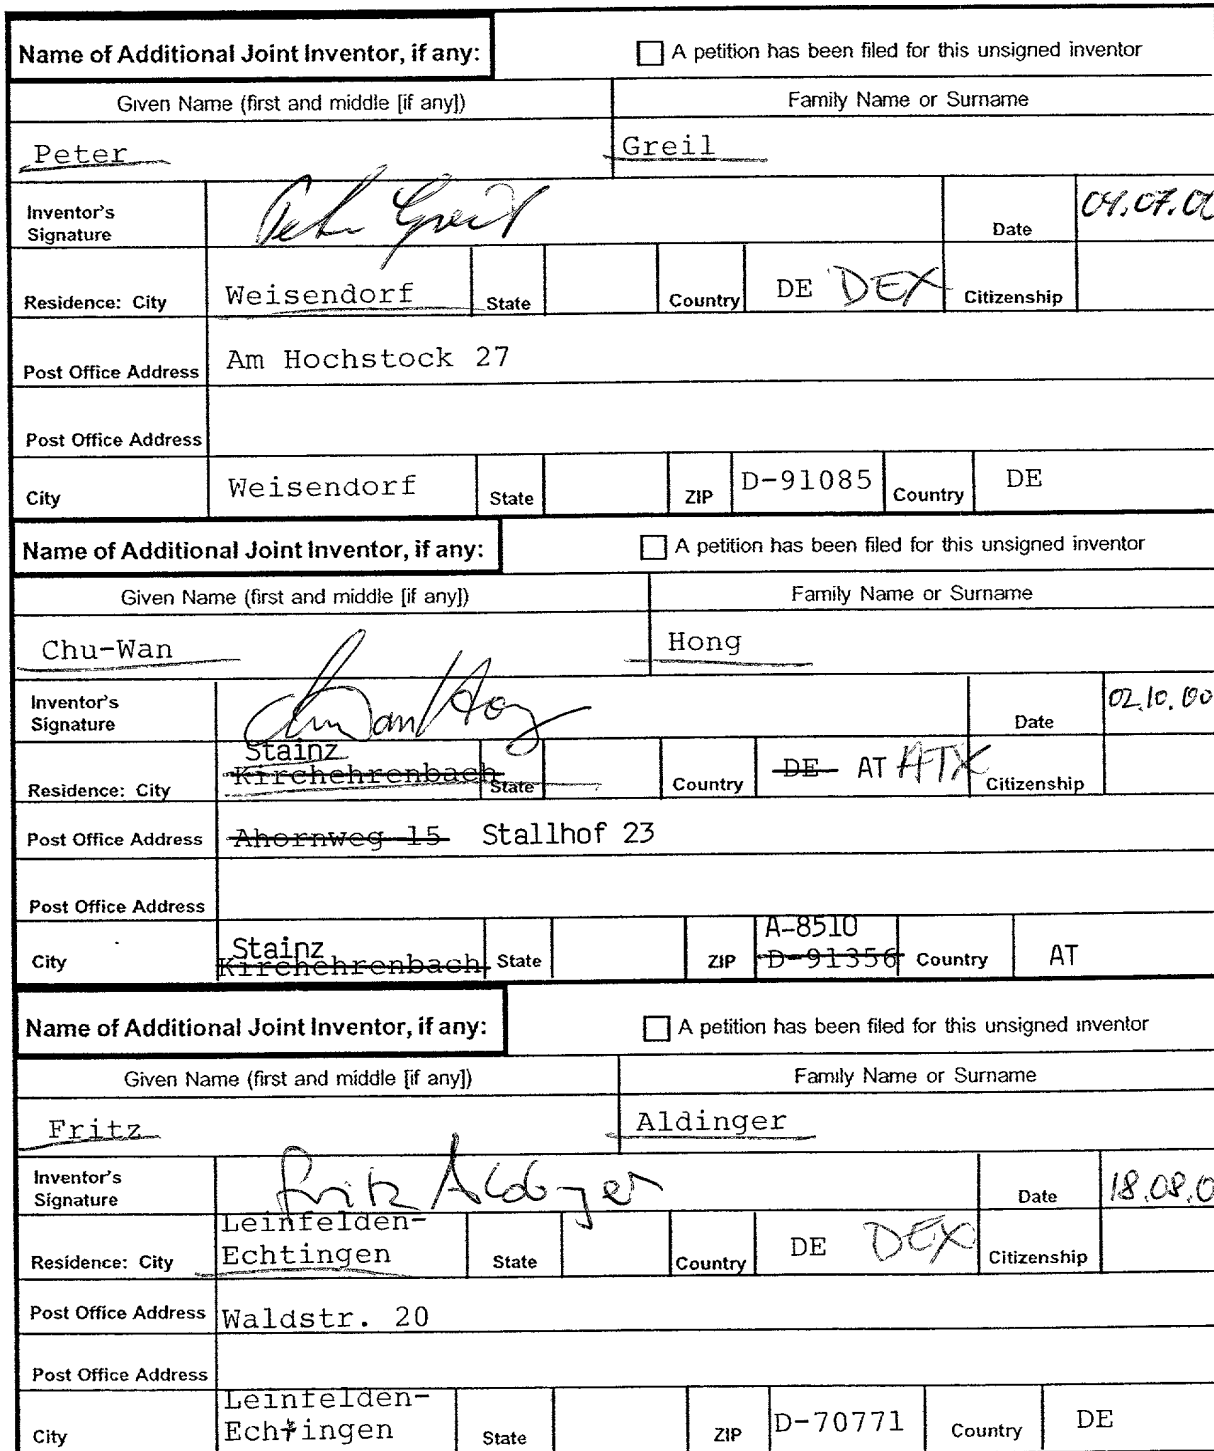 Name of Additional Joint Inventor, if any: A petition has been filed for this unsigned inventor
Given Name (first and middle [if any]) Family Name or Surname
Peter Greil
Inventor's Signature Peter Greil Date 04.07.0
Residence: City Weisendorf State Country DE DEX Citizenship
Post Office Address Am Hochstock 27
Post Office Address
City Weisendorf State ZIP D-91085 Country DE
Name of Additional Joint Inventor, if any: A petition has been filed for this unsigned inventor
Given Name (first and middle [if any]) Family Name or Surname
Chu-Wan Hong
Inventor's Signature Chu Wan Hong Date 02.10.00
Stainz
Residence: City Kirchehrenbach State Country DE AT ATX Citizenship
Post Office Address Ahornweg 15 Stallhof 23
Post Office Address
Stainz A-8510
City Kirchehrenbach State ZIP D-91356 Country AT
Name of Additional Joint Inventor, if any: A petition has been filed for this unsigned inventor
Given Name (first and middle [if any]) Family Name or Surname
Fritz Aldinger
Inventor's Signature Fritz Aldinger Date 18.08.0
Leinfelden-
Residence: City Echtingen State Country DE DEX Citizenship
Post Office Address Waldstr. 20
Post Office Address
Leinfelden-
City Echtingen State ZIP D-70771 Country DE